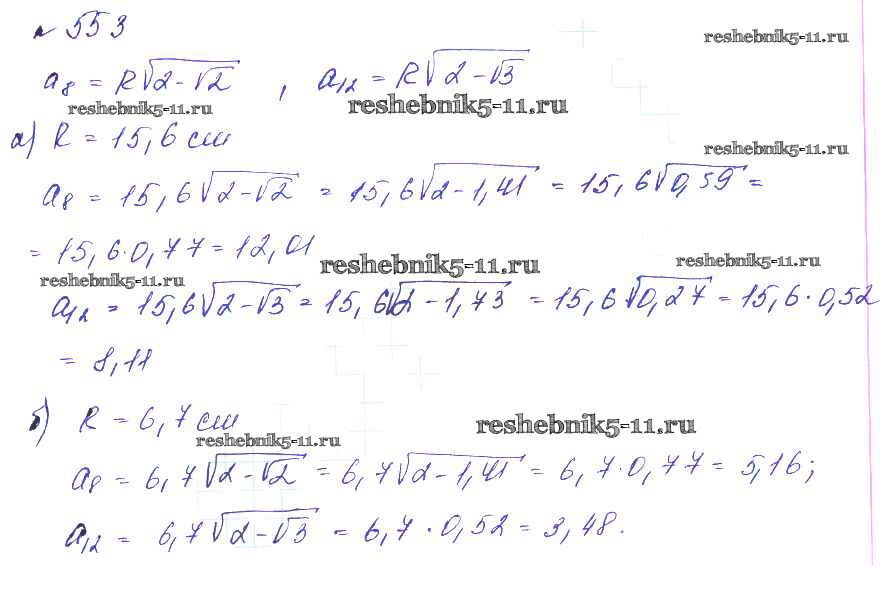 № 553
reshebnik5-11.ru
a₈ = R√(2-√2) , a₁₂ = R√(2-√3)
reshebnik5-11.ru reshebnik5-11.ru
а) R = 15,6 см
reshebnik5-11.ru
a₈ = 15,6√(2-√2) = 15,6√(2-1,41) = 15,6√0,59 =
= 15,6·0,77 = 12,01
reshebnik5-11.ru reshebnik5-11.ru reshebnik5-11.ru
a₁₂ = 15,6√(2-√3) = 15,6√(2-1,73) = 15,6√0,27 = 15,6·0,52
= 8,11
б) R = 6,7 см
reshebnik5-11.ru reshebnik5-11.ru
a₈ = 6,7√(2-√2) = 6,7√(2-1,41) = 6,7·0,77 = 5,16;
a₁₂ = 6,7√(2-√3) = 6,7·0,52 = 3,48.